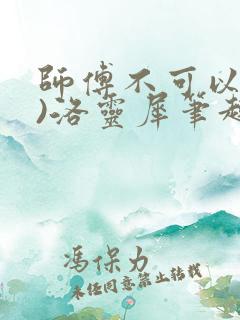 師傅不可以
)洛靈犀筆趣
馮保力
未經同意禁止轉載